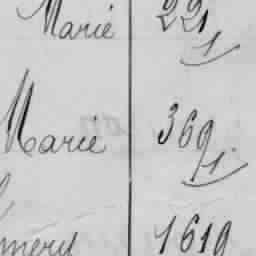 Marie 221
1
Marie 369
1
1619